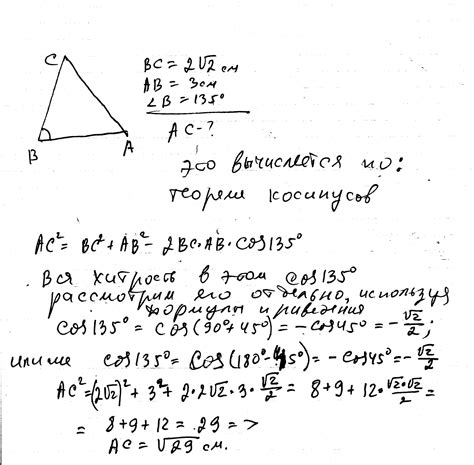 C
B
A
BC = 2√2 см
AB = 3см
∠B = 135°
AC - ?
это вычисляется по:
теореме косинусов
AC² = BC² + AB² - 2BC·AB·cos135°
Вся хитрость в этом cos135°
рассмотрим его отдельно, используя
формулы приведения
cos135° = cos(90°+45°) = -cos45° = -√2/2;
или же cos135° = cos(180°-45°) = -cos45° = -√2/2
AC² = (2√2)² + 3² + 2·2√2·3·√2/2 = 8+9+12·√2·√2/2 =
= 8+9+12 = 29 =>
AC = √29 см.